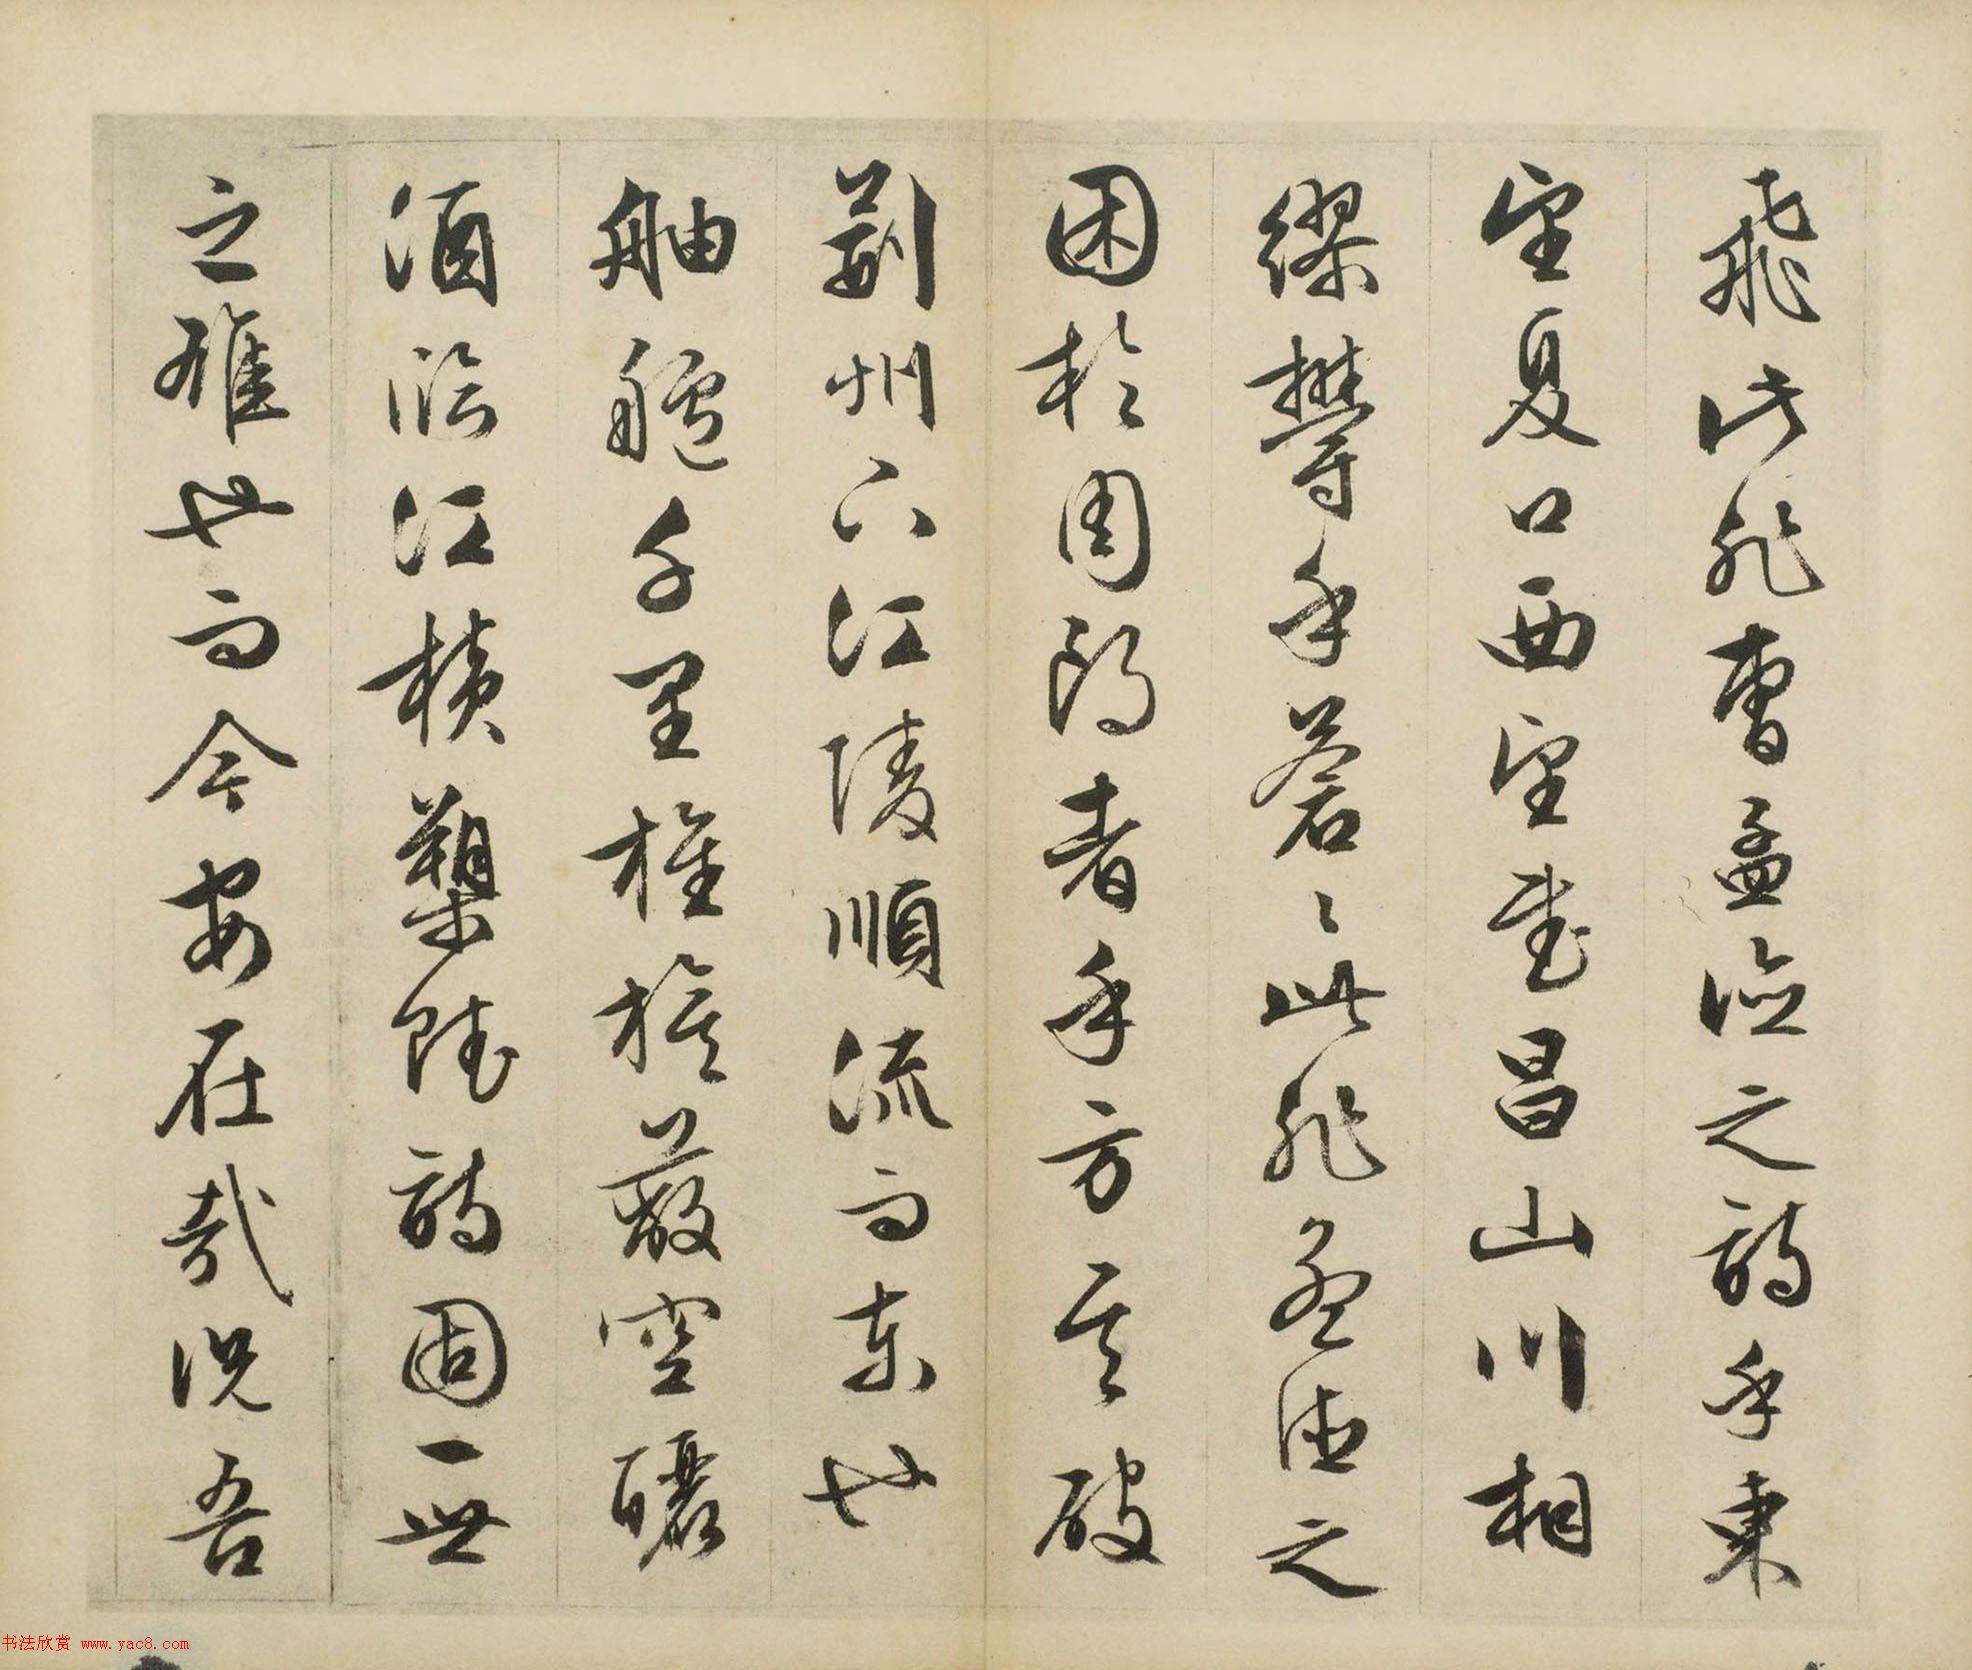 飛此非曹孟德之詩乎東
望夏口西望武昌山川相
繆欝乎蒼〻此非孟德之
困於周郎者乎方其破
荊州下江陵順流而東也
舳艫千里旌旗蔽空釃
酒臨江橫槊賦詩固一世
之雄也而今安在哉況吾
书法欣赏 www.yac8.com